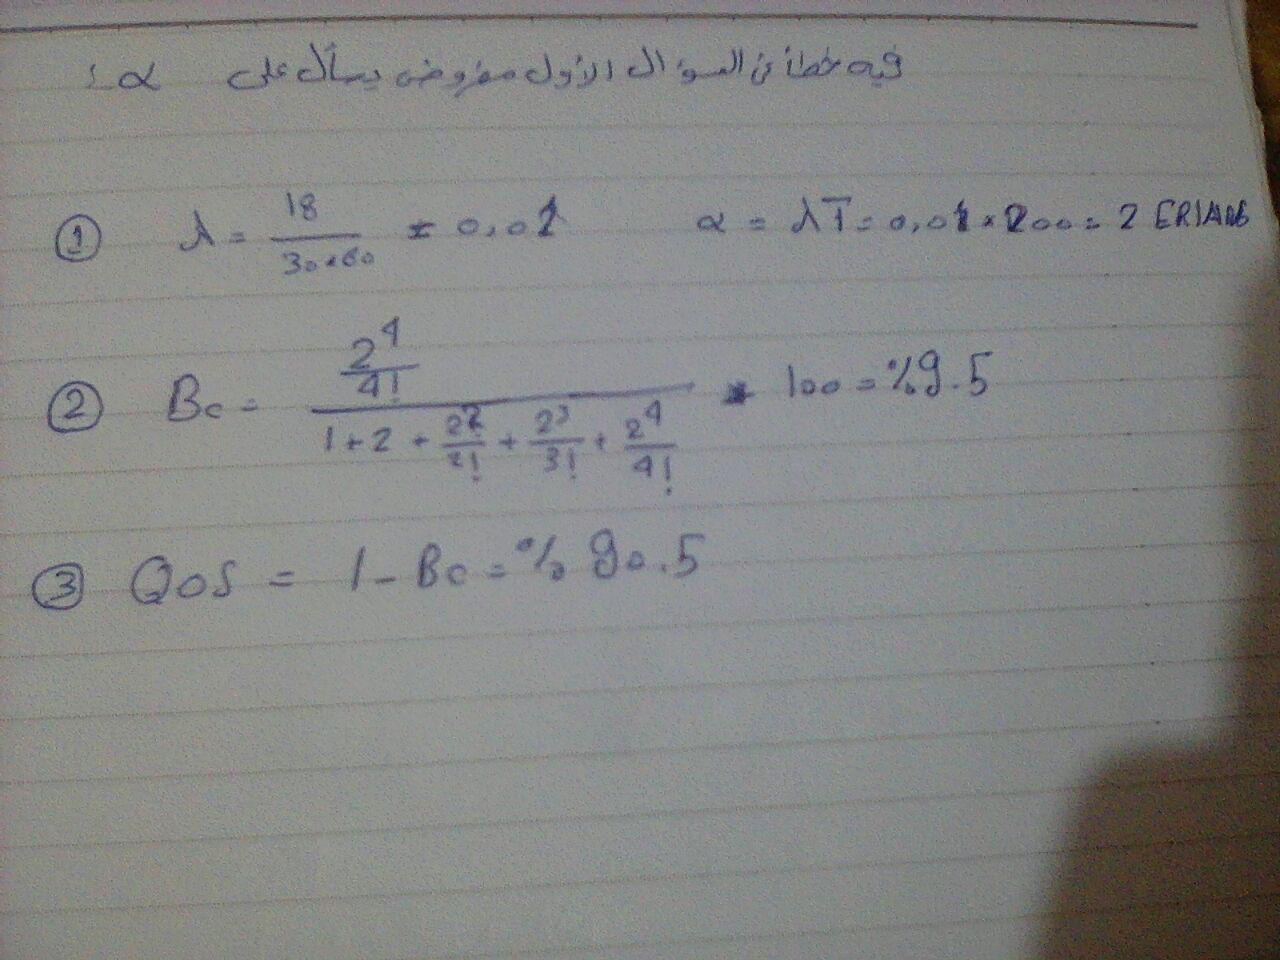 فيه خطأ في السؤال الأول مفروض يسأل على α :
① λ = 18 / 30×60 = 0,01 α = λT = 0,01 × 200 = 2 ERIANG
② Bc = (2^4 / 4!) / (1 + 2 + 2^2/2! + 2^3/3! + 2^4/4!) * 100 = %9.5
③ QoS = 1 - Bc = % 90.5